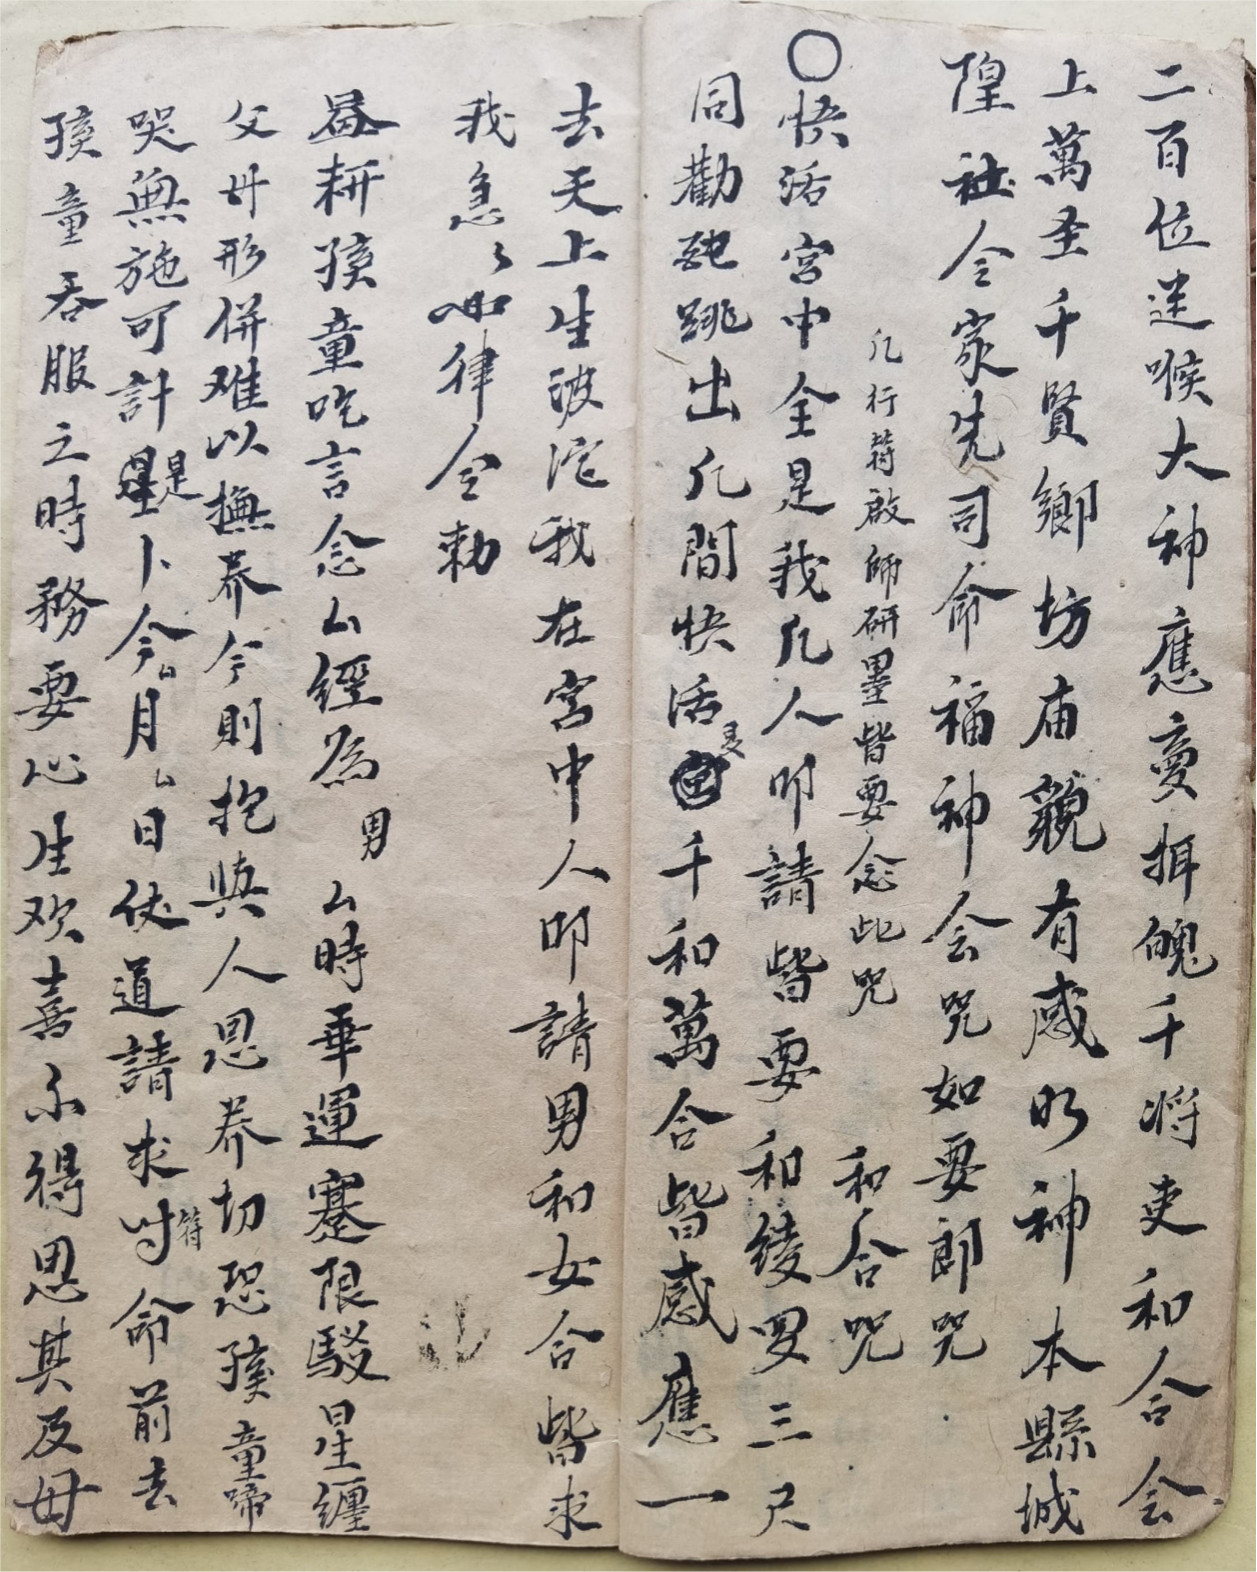 二百位迷喉大神應變挕魄千将吏和合会
上萬圣千賢鄉坊庙觀有感明神本縣城
隍社令家先司命福神会咒如要郎咒
凡行符啟師研墨皆要念此咒
和合咒
〇快活宮中全是我凡人叩請皆要和绫罗三尺
同勸跳出凡間快活千和萬合皆感應一
去天上生波沱我在宮中人叩請男和女合皆求
我急〻如律令勅
益耕孩童吃言念厶經為男厶時乖運蹇限駁星纏
父母形併难以撫养今則抱與人恩养切恐孩童啼
哭無施可計是卜今厶月厶日伏道請求符命前去
孩童吞服之時務要心生欢喜不得思其及母